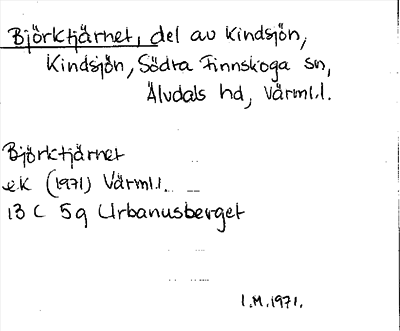 Björktjärnet, del av Kindsjön,
Kindsjön, Södra Finnskoga sn,
Älvdals hd, Värml.l.
Björktjärnet
ek (1971) Värml.l.
13 C 5g Urbanusberget
I.M.1971.